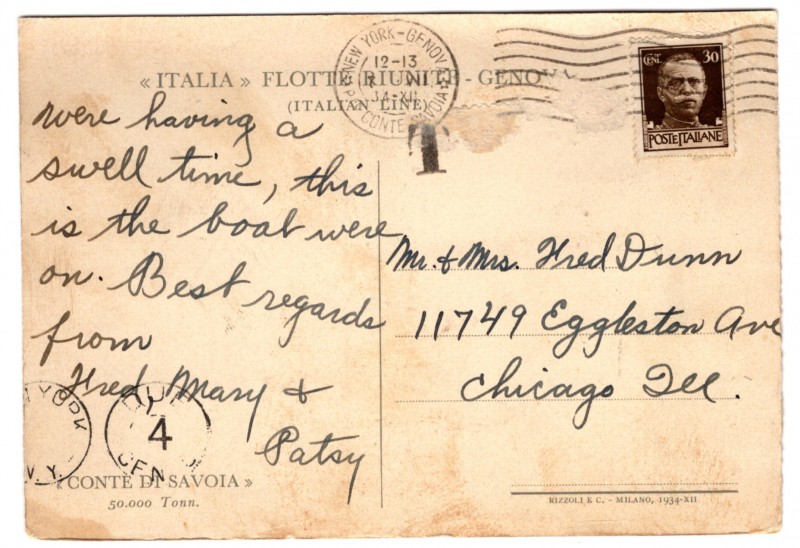 « ITALIA » FLOTTE RIUNITE - GENOVA
(ITALIAN LINE)
NEW YORK - GENOVA
12-13
34-XII
CONTE SAVOIA
T
CENT. 30
POSTE ITALIANE
were having a
swell time, this
is the boat were
on. Best regards
from
Fred Mary &
Patsy
Mr. & Mrs. Fred Dunn
11749 Eggleston Ave
Chicago Ill.
YORK
N.Y.
DUE
4
CEN
« CONTE DI SAVOIA »
50.000 Tonn.
RIZZOLI E C. - MILANO, 1934-XII